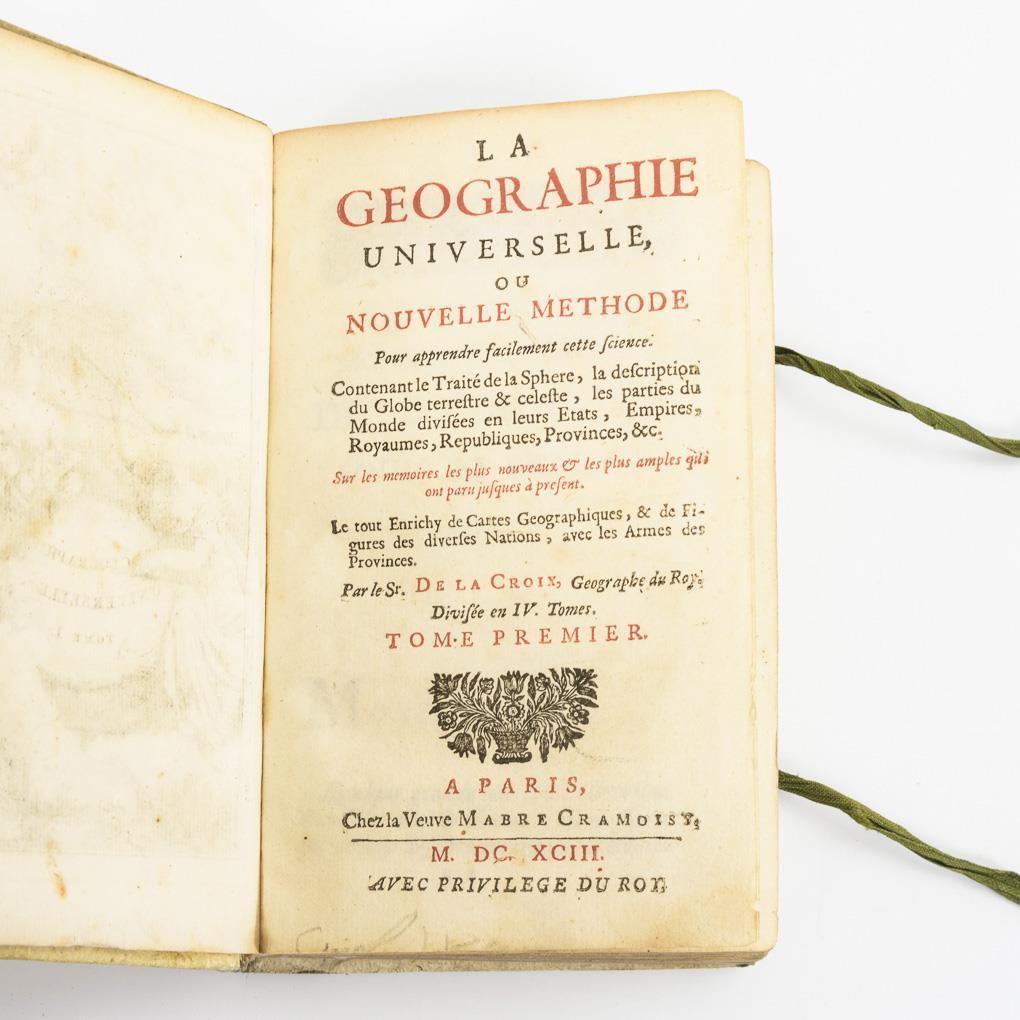 LA
GEOGRAPHIE
UNIVERSELLE,
OU
NOUVELLE METHODE
Pour apprendre facilement cette ſcience.
Contenant le Traité de la Sphere, la deſcription
du Globe terreſtre & celeſte, les parties du
Monde diviſées en leurs Etats, Empires,
Royaumes, Republiques, Provinces, &c.
Sur les memoires les plus nouveaux & les plus amples qui
ont paru juſques à preſent.
Le tout Enrichy de Cartes Geographiques, & de Fi-
gures des diverſes Nations, avec les Armes des
Provinces.
Par le Sr. DE LA CROIX, Geographe du Roy.
Diviſée en IV. Tomes.
TOME PREMIER.
A PARIS,
Chez la Veuve MABRE CRAMOISY,
M. DC. XCIII.
AVEC PRIVILEGE DU ROY.